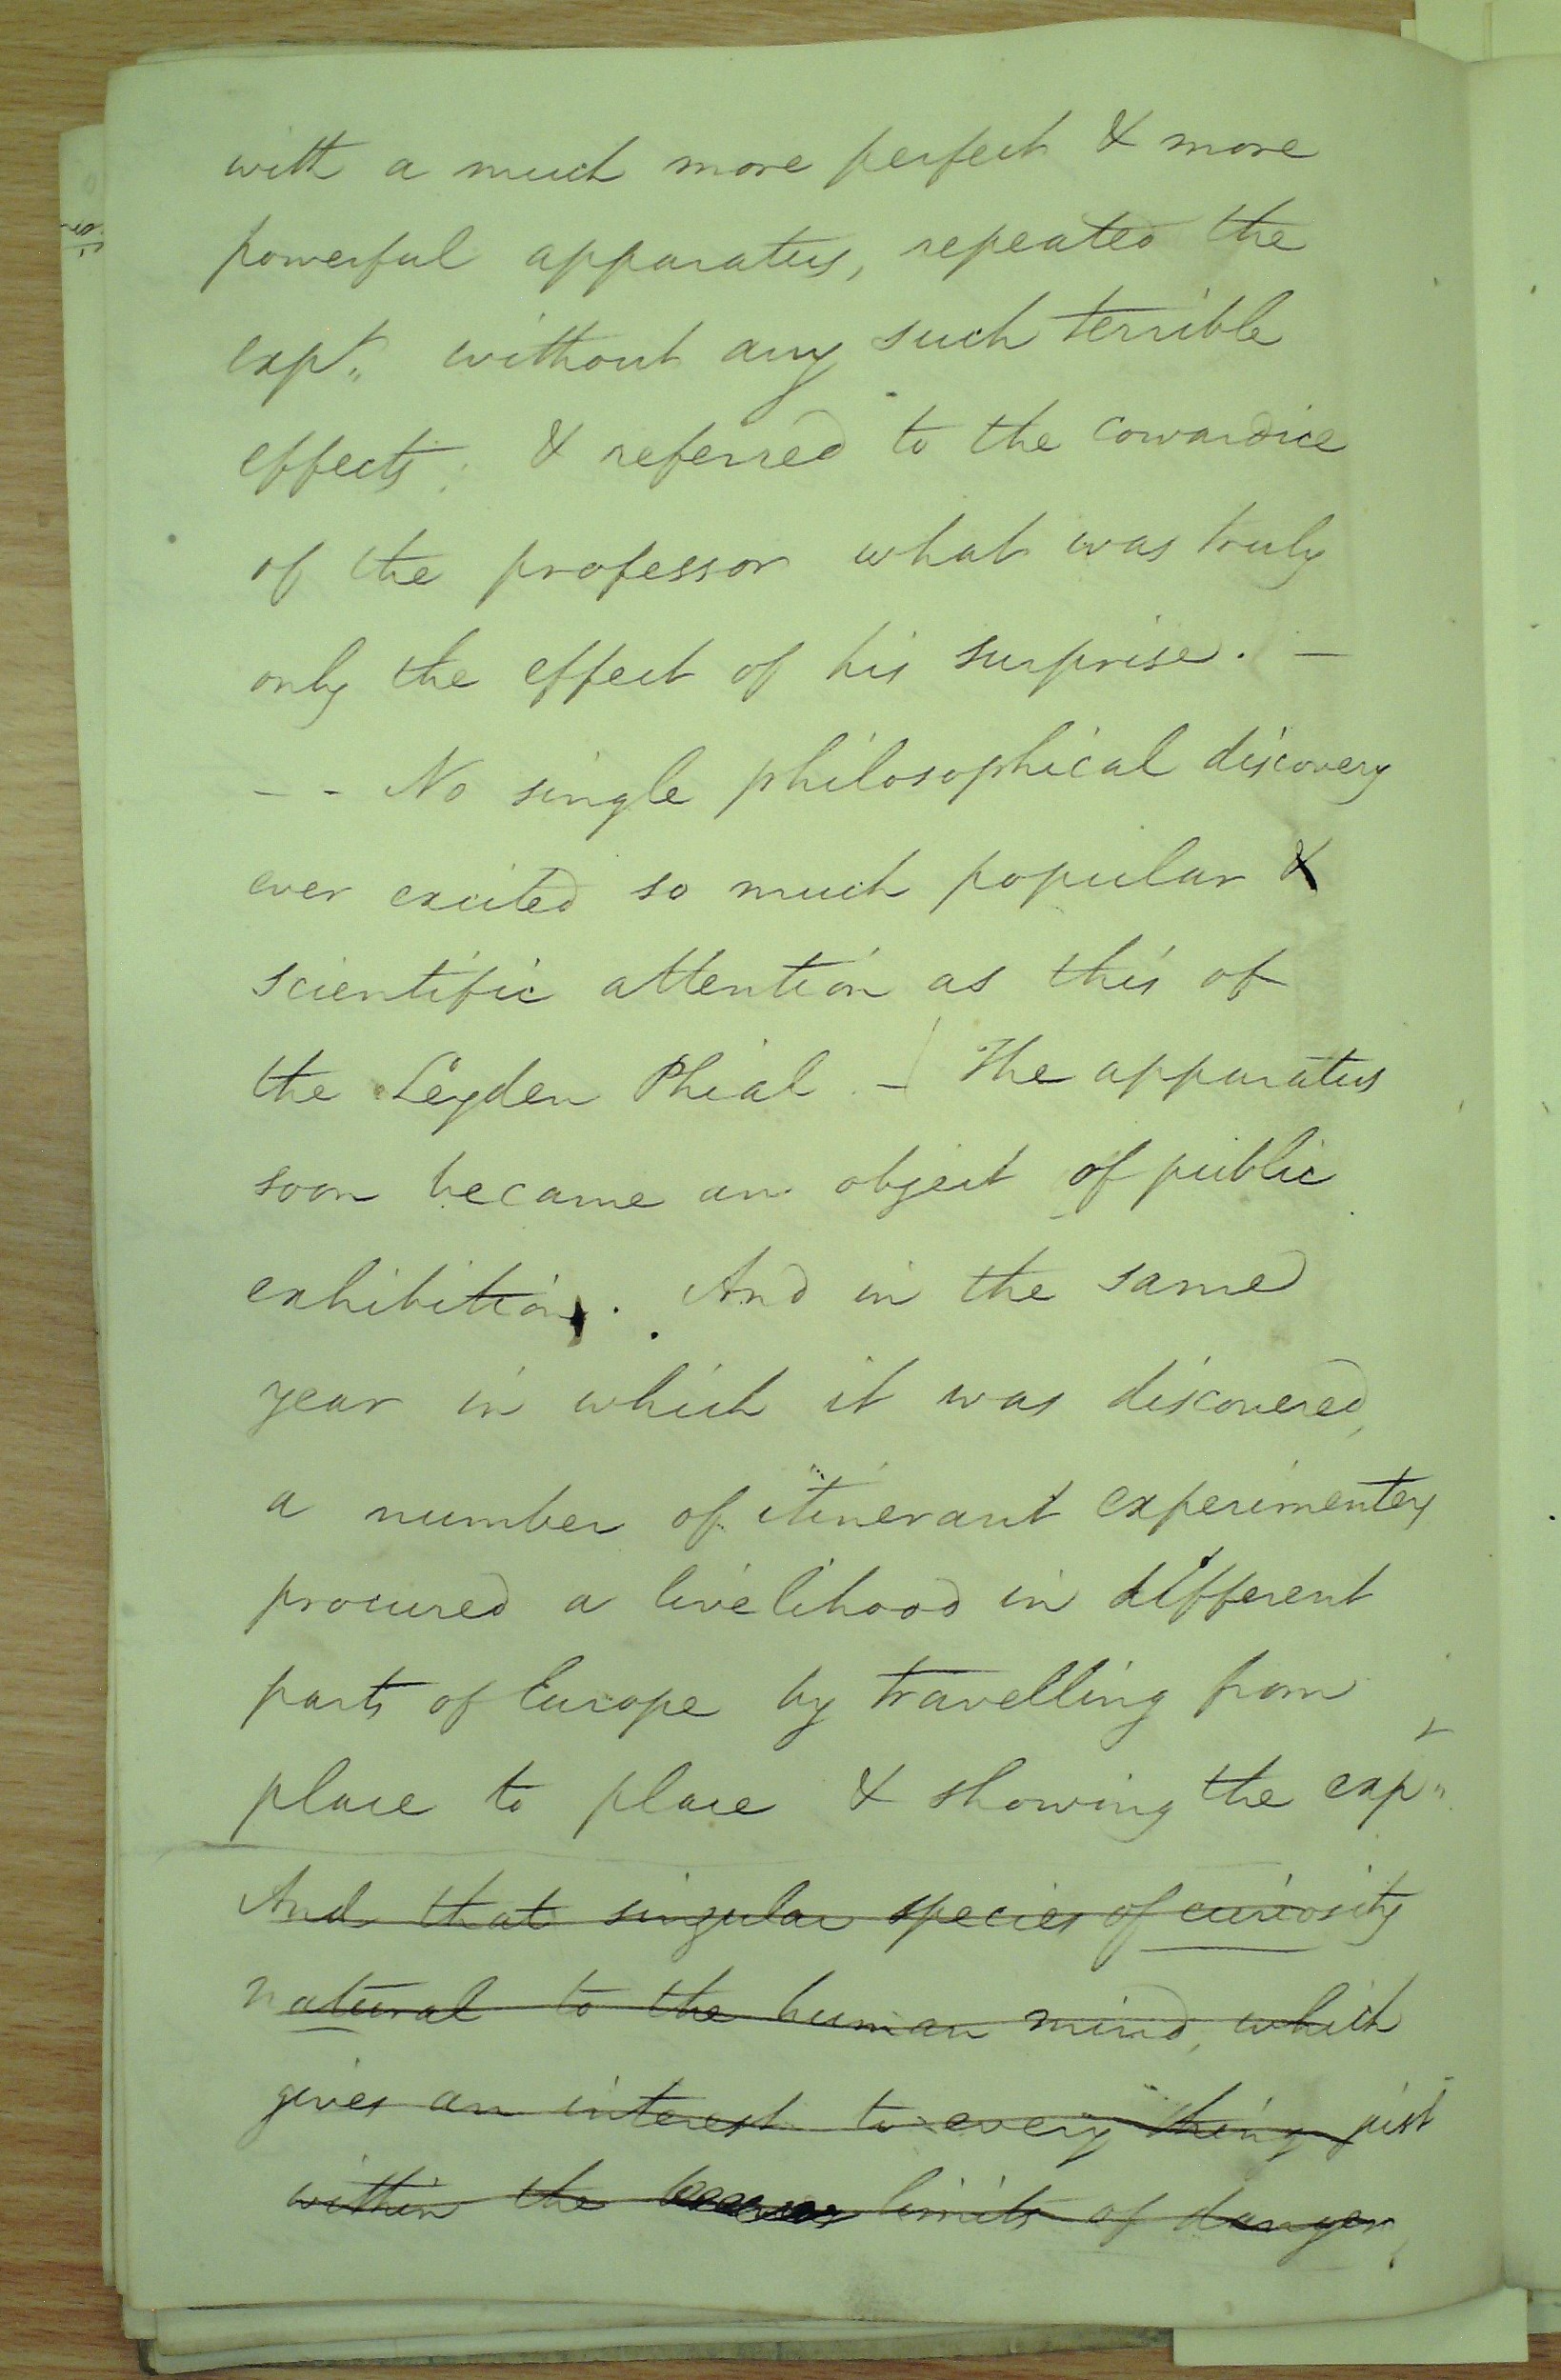 with a much more perfect & more
powerful apparatus, repeated the
expt. without any such terrible
effects; & referred to the cowardice
of the professor what was truly
only the effect of his surprise. —
– - No single philosophical discovery
ever excited so much popular &
scientific attention as this of
the Leyden Phial. – The apparatus
soon became an object of public
exhibition. And in the same
year in which it was discovered,
a number of itinerant experimenters
procured a livelihood in different
parts of Europe by travelling from
place to place & showing the expt.
And that singular species of curiosity
natural to the human mind, which
gives an interest to every thing just
within the limits of danger,